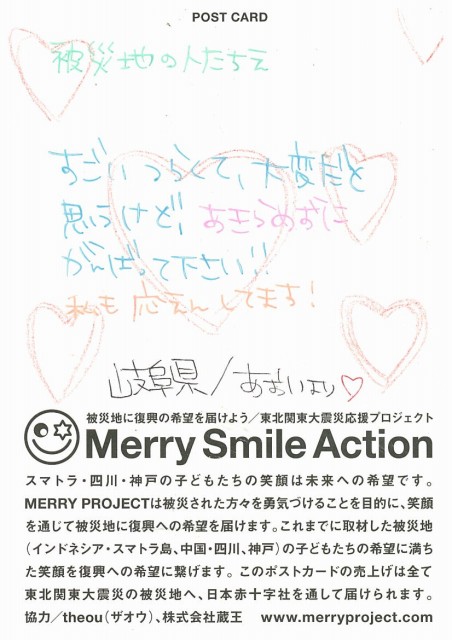 POST CARD
被災地の人たちえ
すごいつらくて、大変だと
思うけど、あきらめずに
がんばって下さい!!
私も応えんしてます!
岐阜県/あおいより♡
被災地に復興の希望を届けよう/東北関東大震災応援プロジェクト
Merry Smile Action
スマトラ・四川・神戸の子どもたちの笑顔は未来への希望です。
MERRY PROJECTは被災された方々を勇気づけることを目的に、笑顔
を通じて被災地に復興への希望を届けます。これまでに取材した被災地
(インドネシア・スマトラ島、中国・四川、神戸)の子どもたちの希望に満ち
た笑顔を復興への希望に繋げます。このポストカードの売上げは全て
東北関東大震災の被災地へ、日本赤十字社を通して届けられます。
協力/theou(ザオウ)、株式会社蔵王 www.merryproject.com